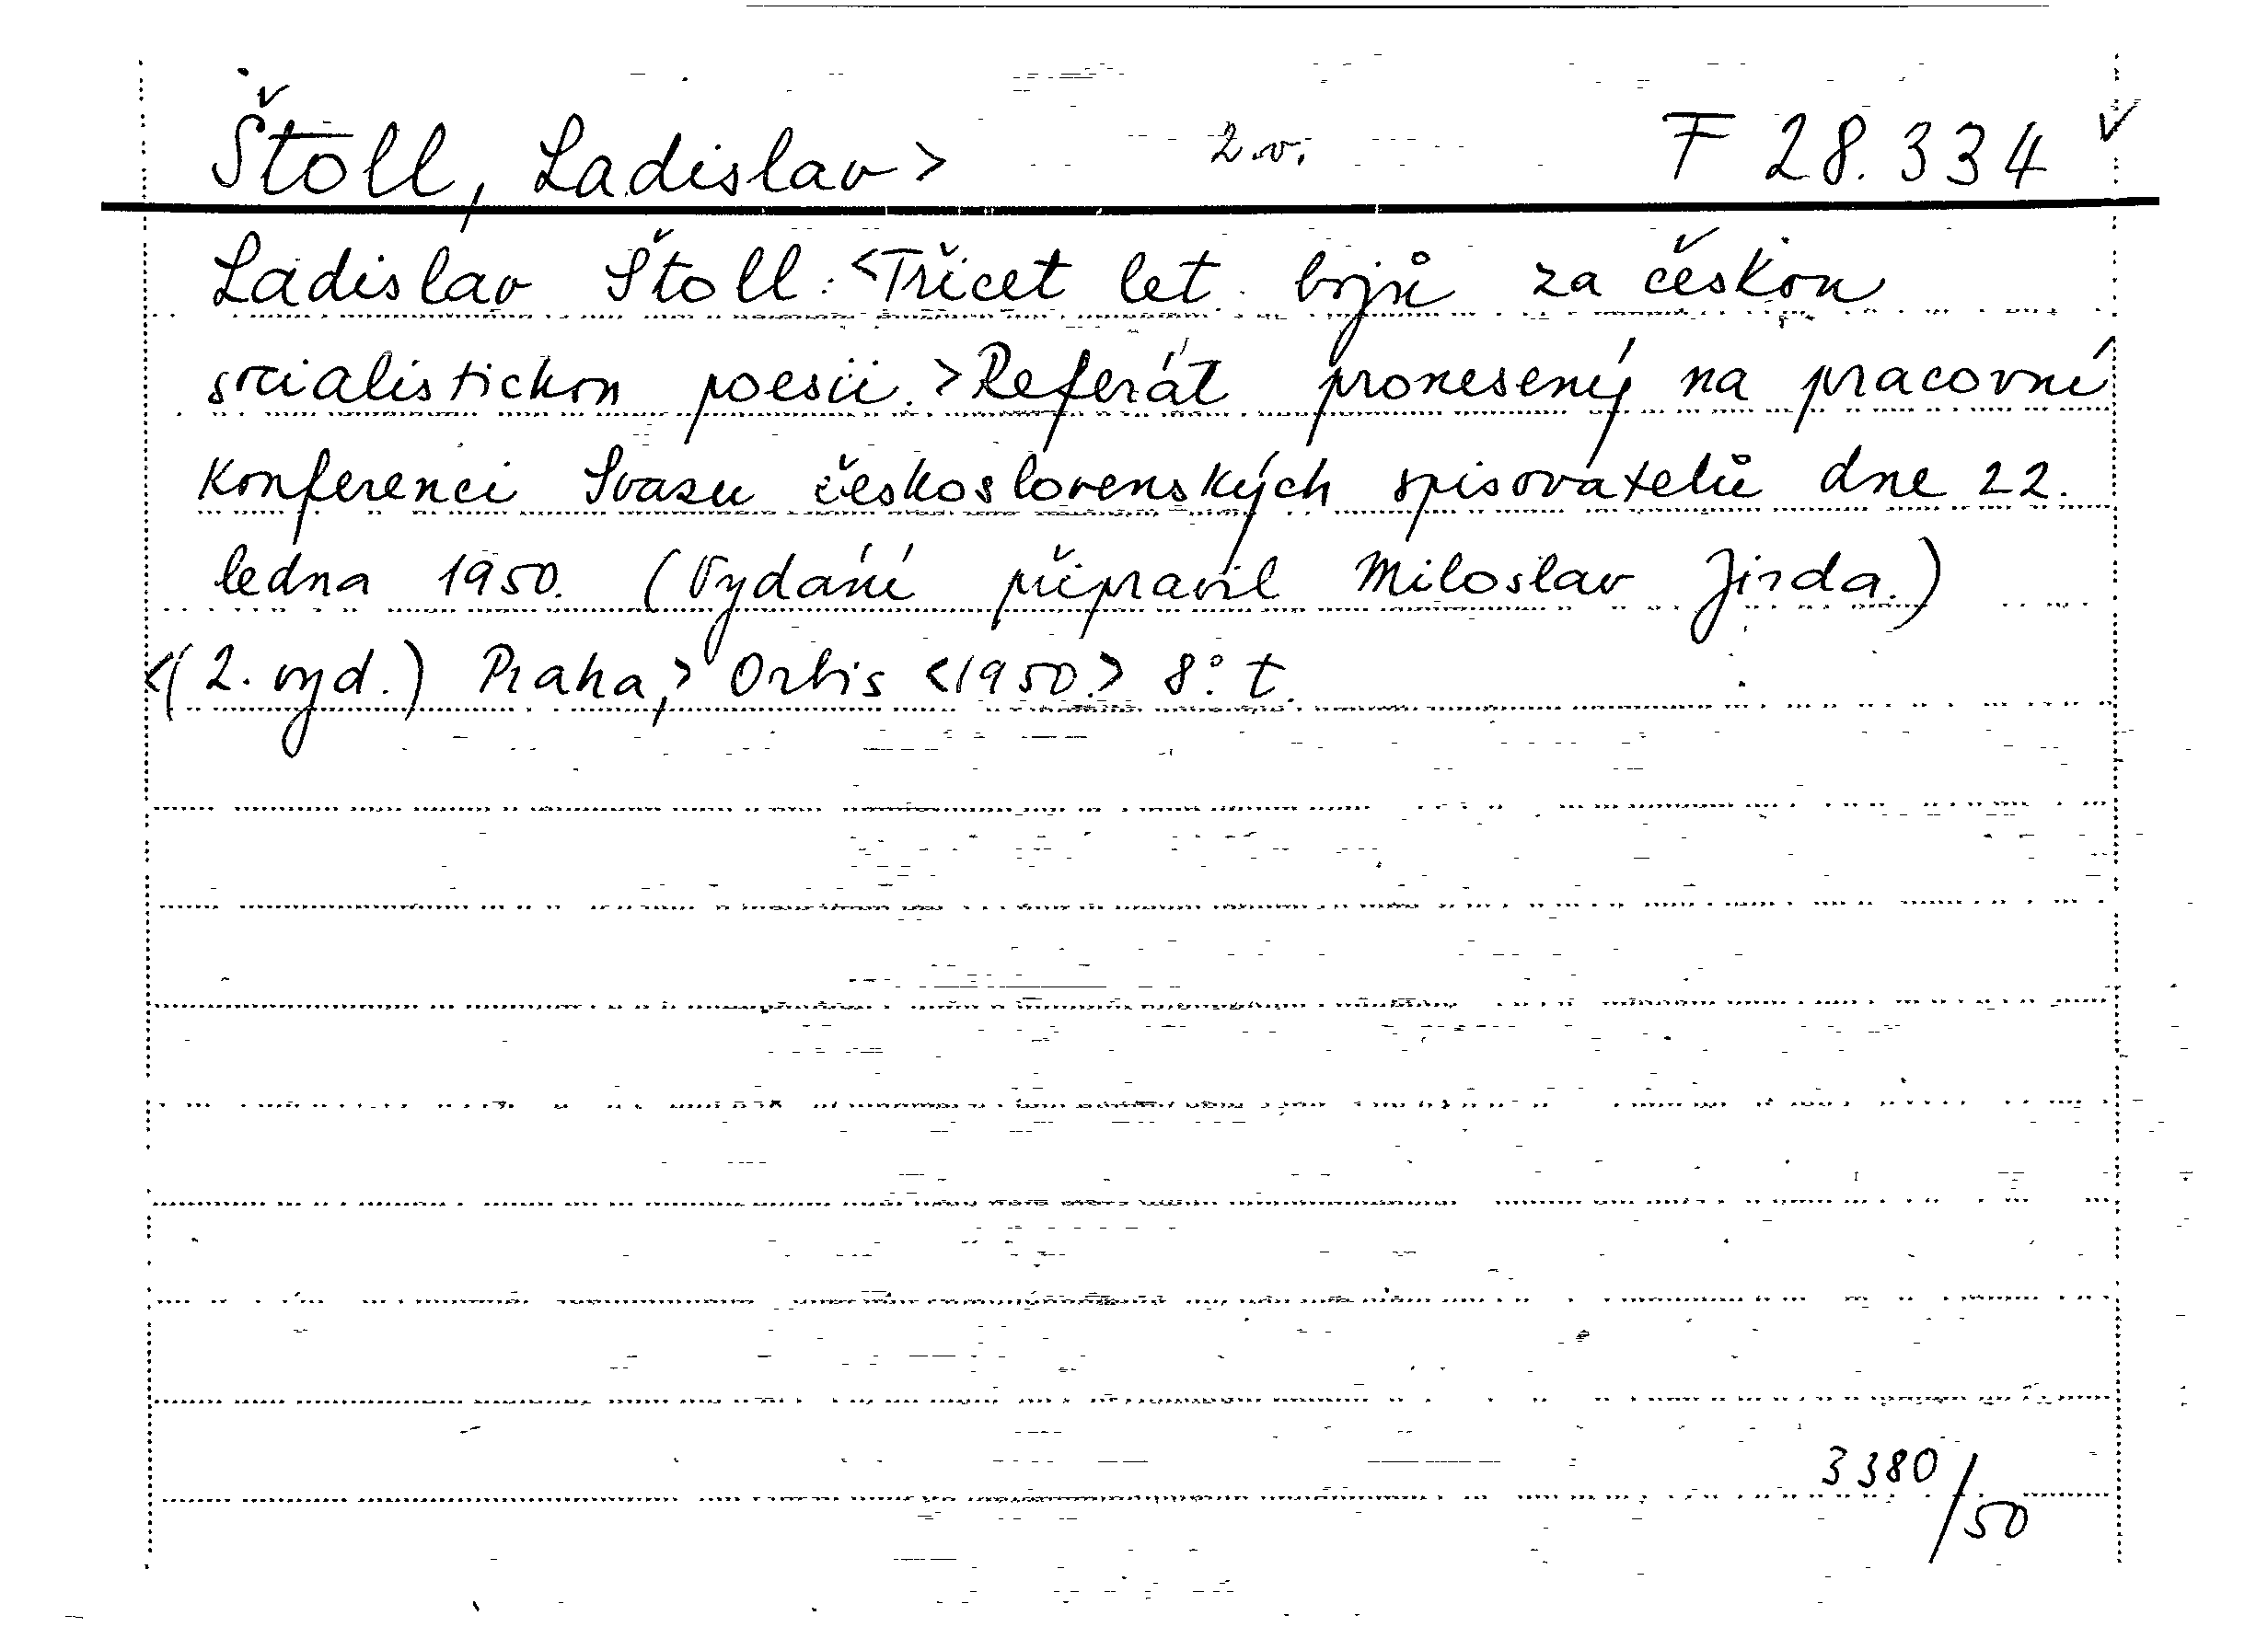 Štoll, Ladislav> 2.v. F 28.334 ✓
Ladislav Štoll: <Třicet let bojů za českou
socialistickou poesii.> Referát pronesený na pracovní
konferenci Svazu československých spisovatelů dne 22.
ledna 1950. (Vydání připravil Miloslav Jirda.)
<(2. vyd.) Praha,> Orbis <1950.> 8° t.
3380/50